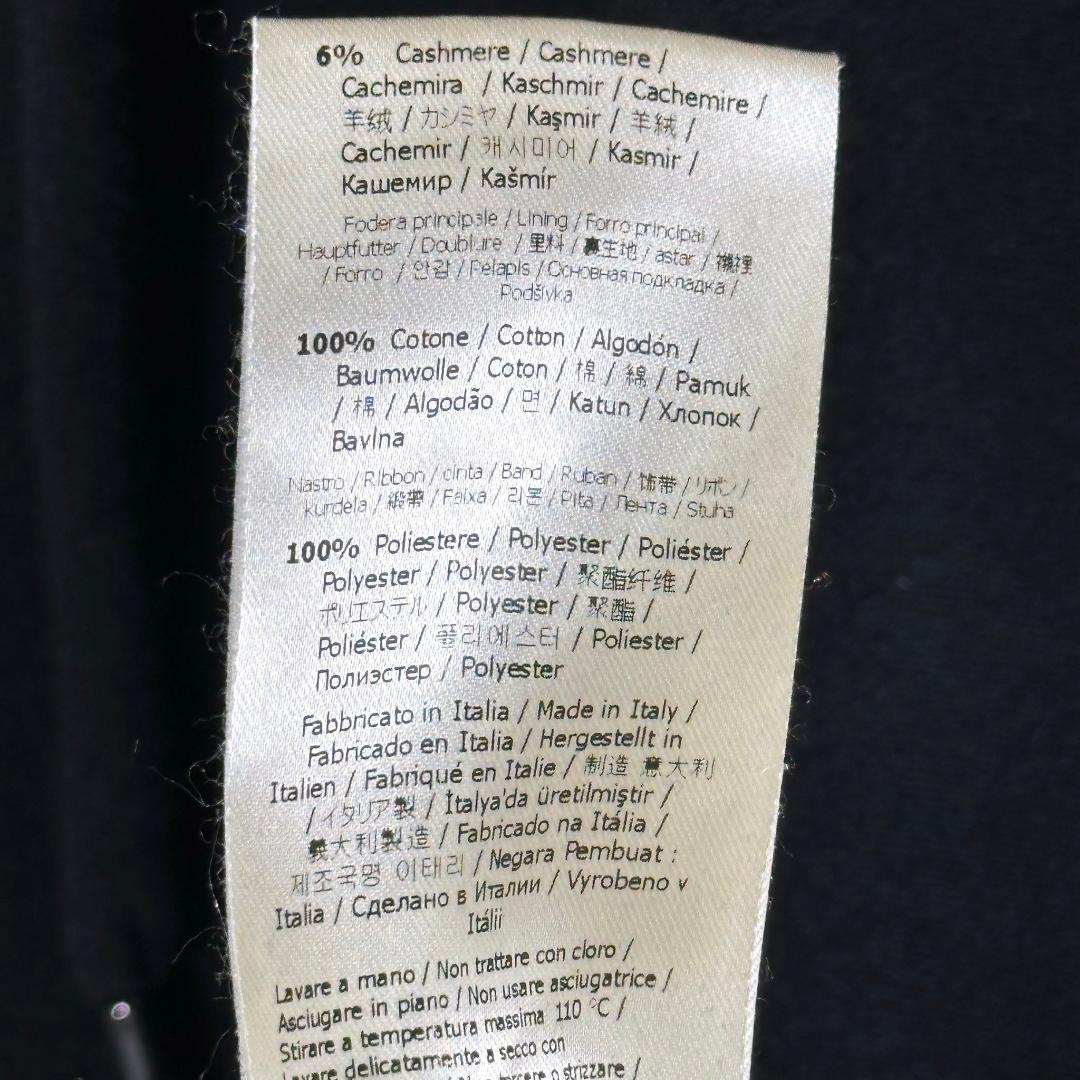 6% Cashmere / Cashmere /
Cachemira / Kaschmir / Cachemire /
羊绒 / カシミヤ / Kaşmir / 羊絨 /
Cachemir / 캐시미어 / Kasmir /
Кашемир / Kašmír
Fodera principale / Lining / Forro principal /
Hauptfutter / Doublure / 里料 / 裏生地 / astar / 襯裡
/ Forro / 안감 / Pelapis / Основная подкладка /
Podšívka
100% Cotone / Cotton / Algodón /
Baumwolle / Coton / 棉 / 綿 / Pamuk
/ 棉 / Algodão / 면 / Katun / Хлопок /
Bavlna
Nastro / Ribbon / cinta / Band / Ruban / 饰带 / リボン /
kurdela / 緞帶 / Faixa / 리본 / Pita / Лента / Stuha
100% Poliestere / Polyester / Poliéster /
Polyester / Polyester / 聚酯纤维 /
ポリエステル / Polyester / 聚酯 /
Poliéster / 폴리에스터 / Poliester /
Полиэстер / Polyester
Fabbricato in Italia / Made in Italy /
Fabricado en Italia / Hergestellt in
Italien / Fabriqué en Italie / 制造 意大利
/ イタリア製 / İtalya'da üretilmiştir /
義大利製造 / Fabricado na Itália /
제조국명 이태리 / Negara Pembuat :
Italia / Сделано в Италии / Vyrobeno v
Itálii
Lavare a mano / Non trattare con cloro /
Asciugare in piano / Non usare asciugatrice /
Stirare a temperatura massima 110 °C /
Lavare delicatamente a secco con
torcere o strizzare /